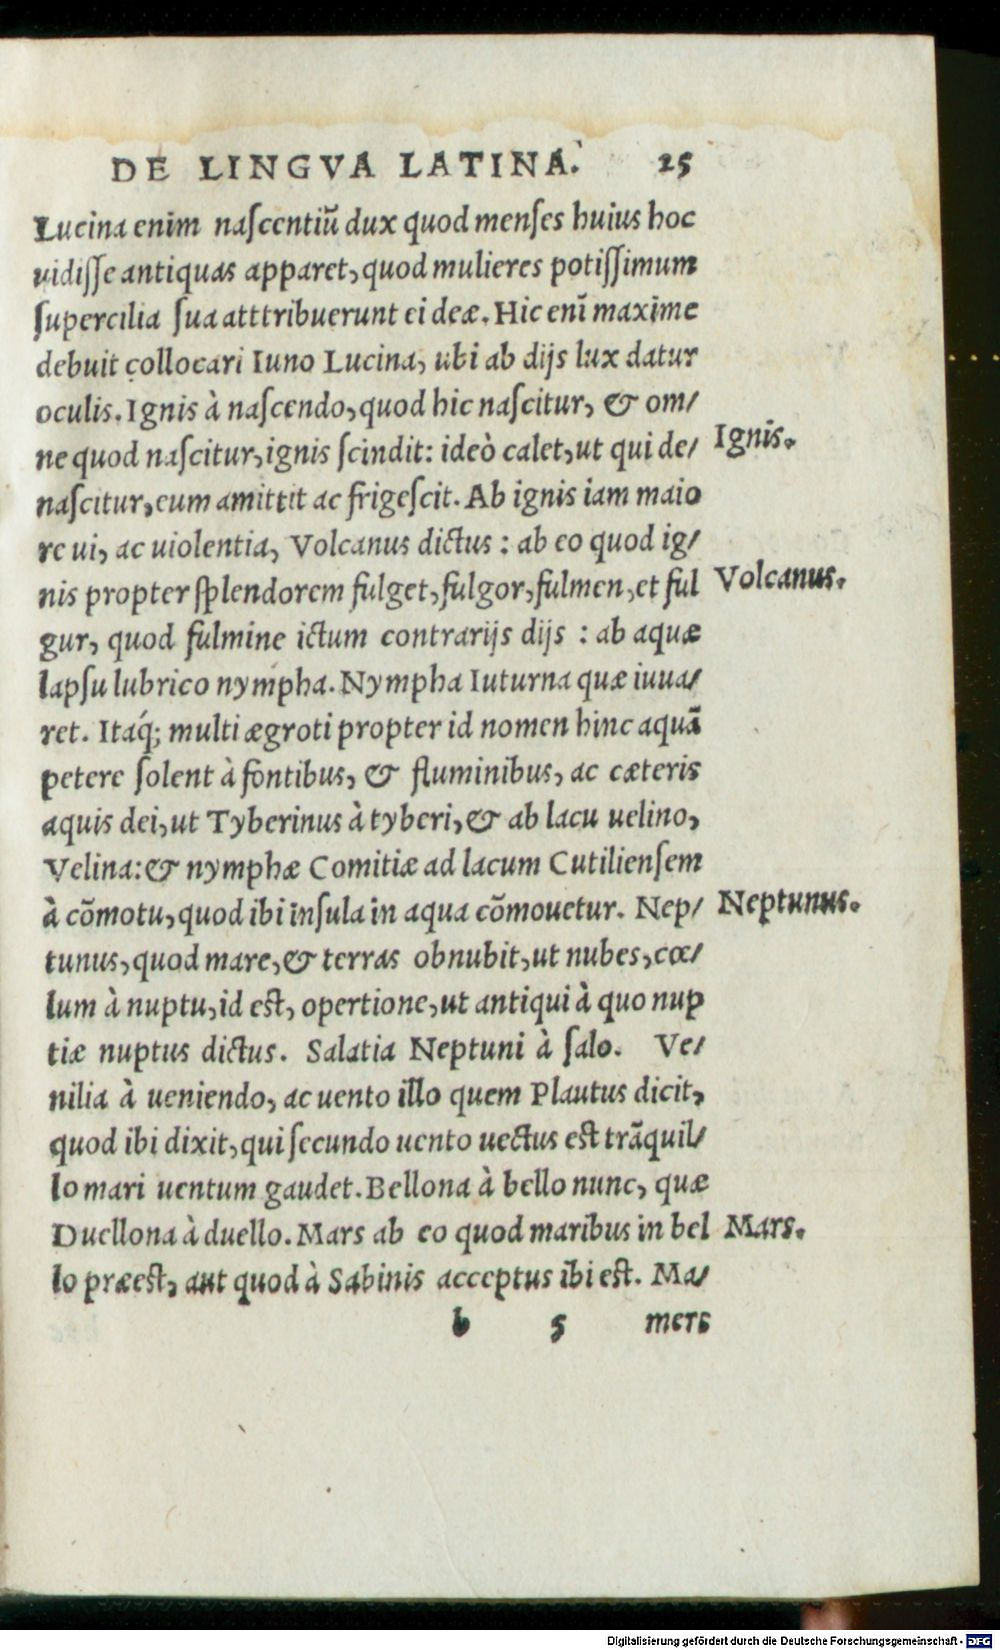 DE LINGVA LATINA. 25
Lucina enim naſcentiũ dux quod menſes huius hoc
uidiſſe antiquas apparet, quod mulieres potiſſimum
ſupercilia ſua atttribuerunt ei deæ. Hic enĩ maxime
debuit collocari Iuno Lucina, ubi ab dijs lux datur
oculis. Ignis à naſcendo, quod hic naſcitur, & om/
ne quod naſcitur, ignis ſcindit: ideò calet, ut qui de/
Ignis.
naſcitur, eum amittit ac frigeſcit. Ab ignis iam maio
re ui, ac uiolentia, Volcanus dictus : ab eo quod ig/
nis propter ſplendorem fulget, fulgor, fulmen, et ful
Volcanus.
gur, quod fulmine ictum contrarijs dijs : ab aquæ
lapſu lubrico nympha. Nympha Iuturna quæ iuua/
ret. Itaq́; multi ægroti propter id nomen hinc aquã
petere ſolent à fontibus, & fluminibus, ac cæteris
aquis dei, ut Tyberinus à tyberi, & ab lacu uelino,
Velina: & nymphæ Comitiæ ad lacum Cutilienſem
à cõmotu, quod ibi inſula in aqua cõmouetur. Nep/
Neptunus.
tunus, quod mare, & terras obnubit, ut nubes, cœ/
lum à nuptu, id est, opertione, ut antiqui à quo nup
tiæ nuptus dictus. Salatia Neptuni à ſalo. Ve/
nilia à ueniendo, ac uento illo quem Plautus dicit,
quod ibi dixit, qui ſecundo uento uectus est trãquil/
lo mari uentum gaudet. Bellona à bello nunc, quæ
Duellona à duello. Mars ab eo quod maribus in bel
Mars.
lo præest, aut quod à Sabinis acceptus ibi est. Ma/
b 5 mers
Digitalisierung gefördert durch die Deutsche Forschungsgemeinschaft - DFG